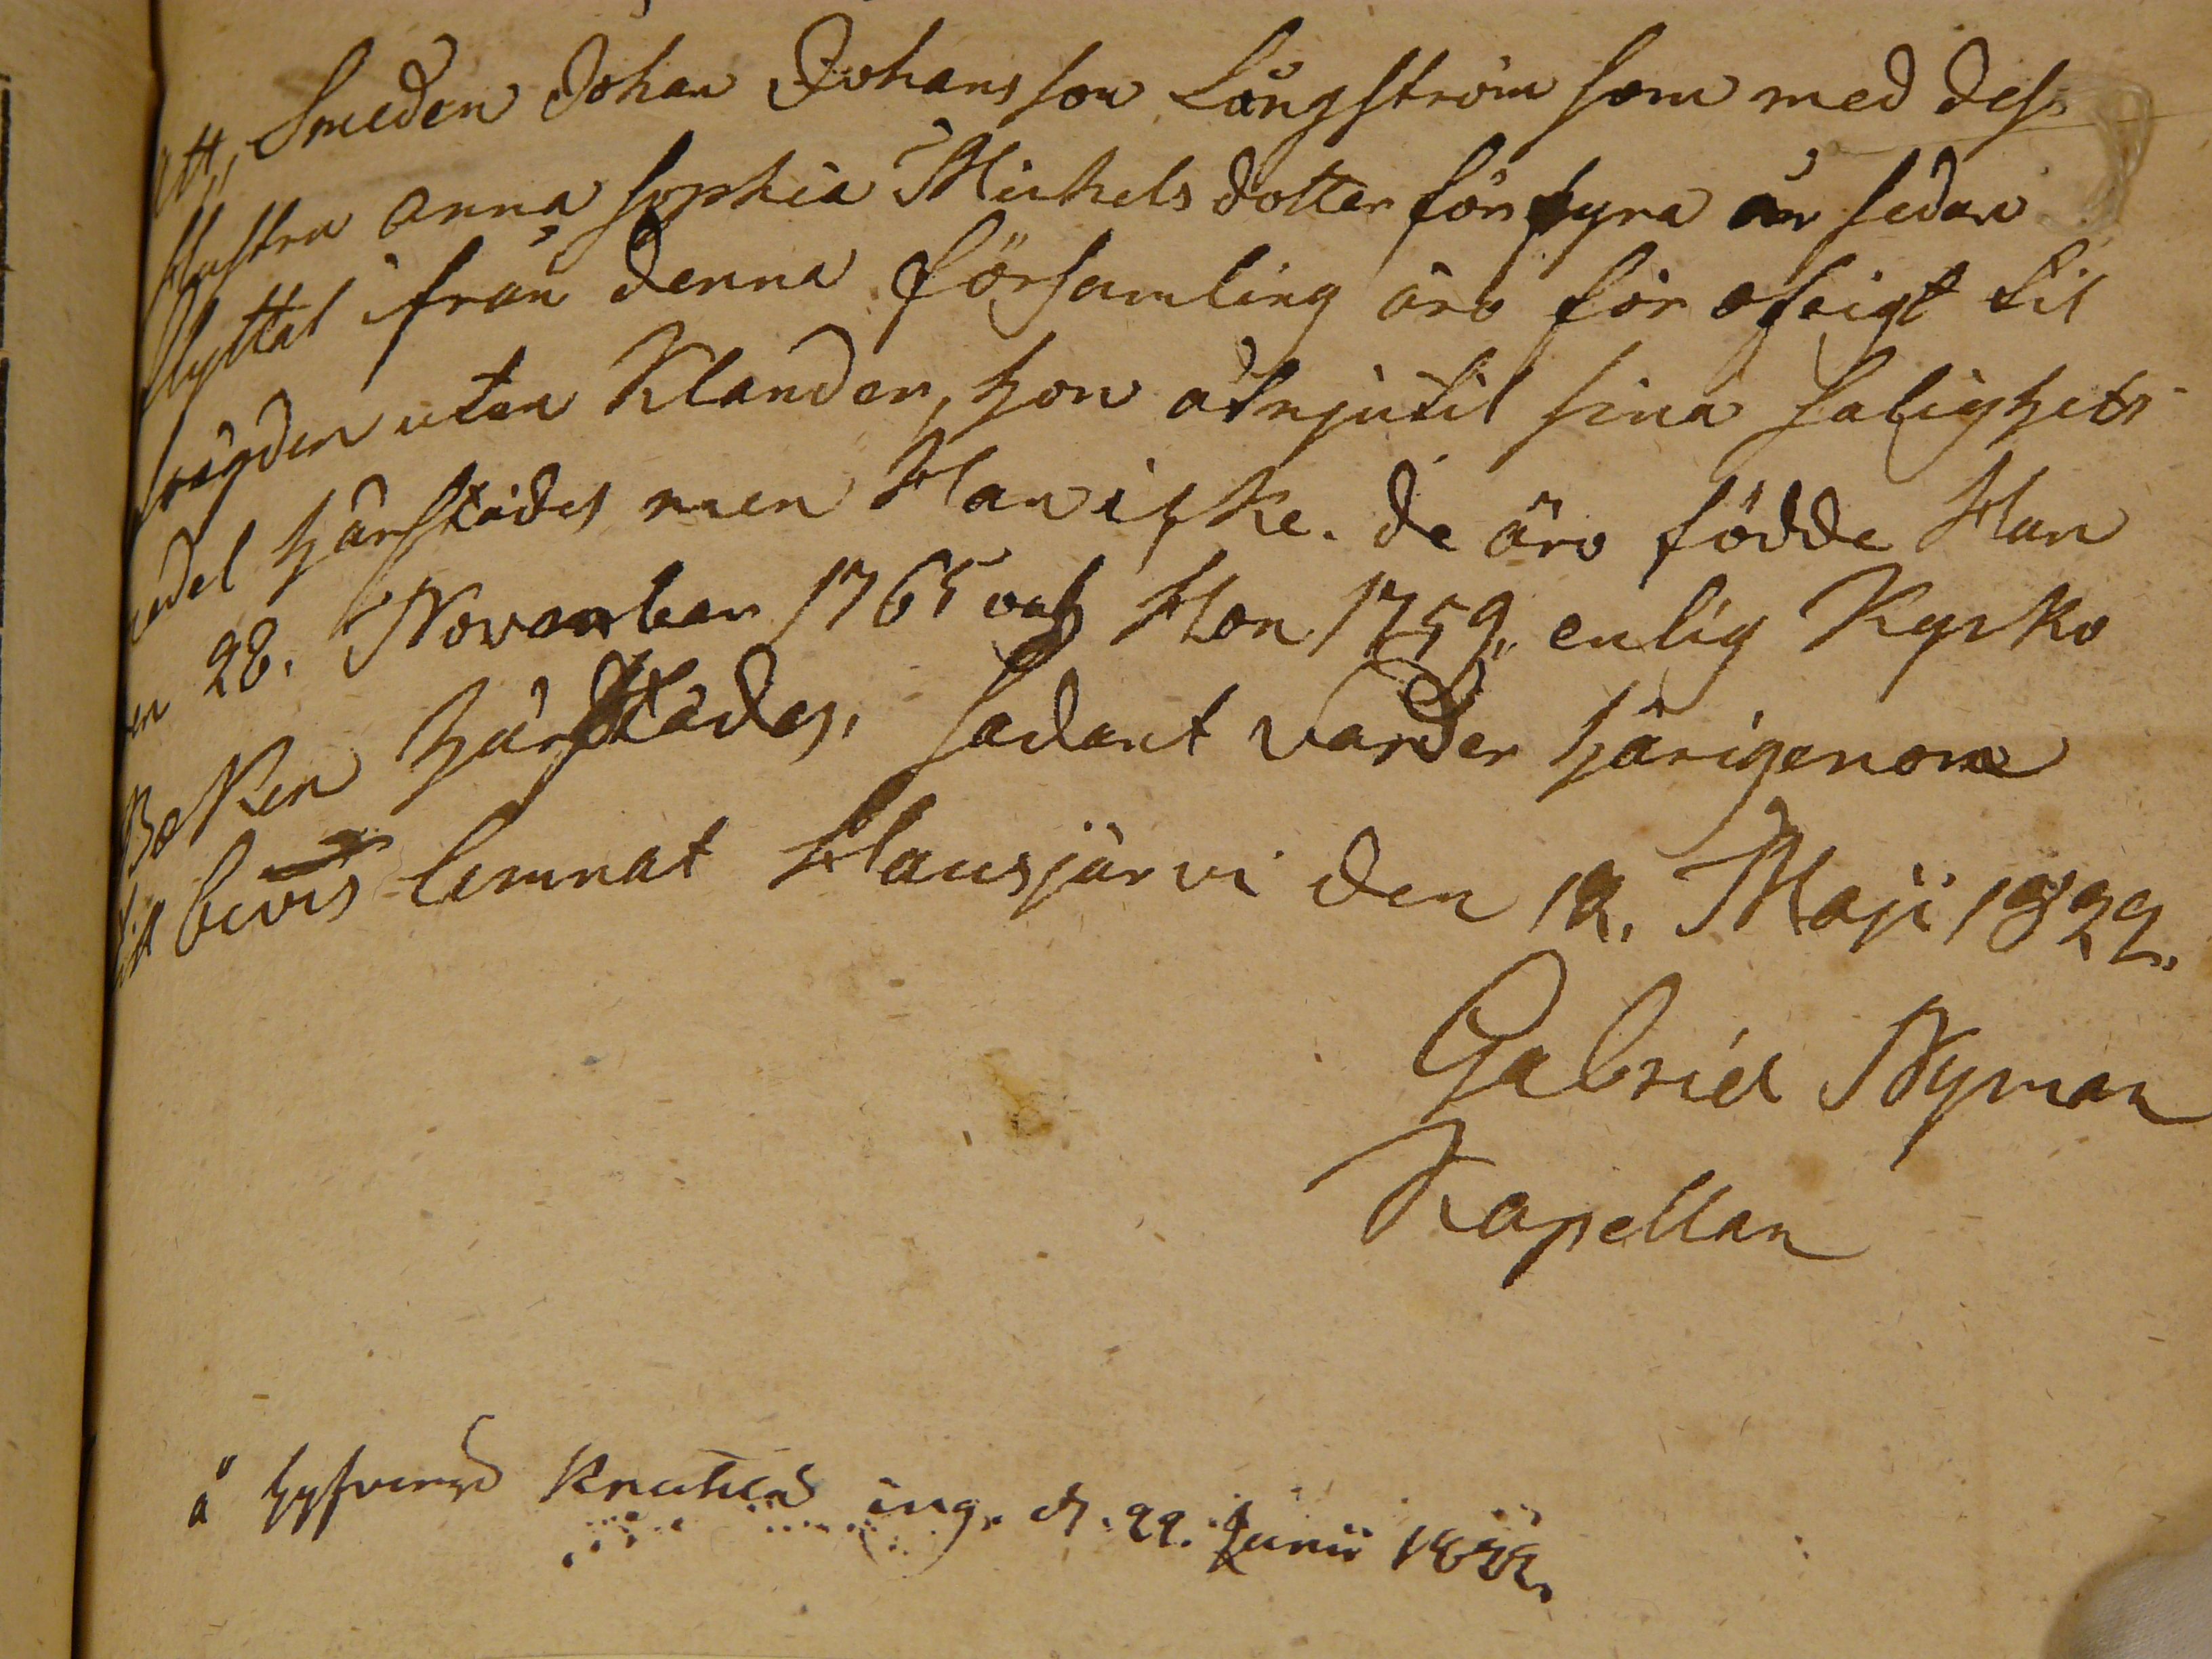 Att, Smeden Johan Johansson Långström som med dess
Hustru Anna Sophia Michelsdotter för fyra år sedan
flyttat ifrån denna församling äro för öfrigt til
frägden utan Klander, hon åtnjutit sina salighets
medel härstädes men Han icke. de äro födde Han
en 28. November 1765 och Hon 1759, enlig Kyrko
Boken härstädes, sådant varder härigenom
til bevis lemnat Hausjärvi den 12. Maji 1822.
Gabriel Nyman
Kapellan
å Hyfvinge Knutila ing. d. 22. Junii 1822.